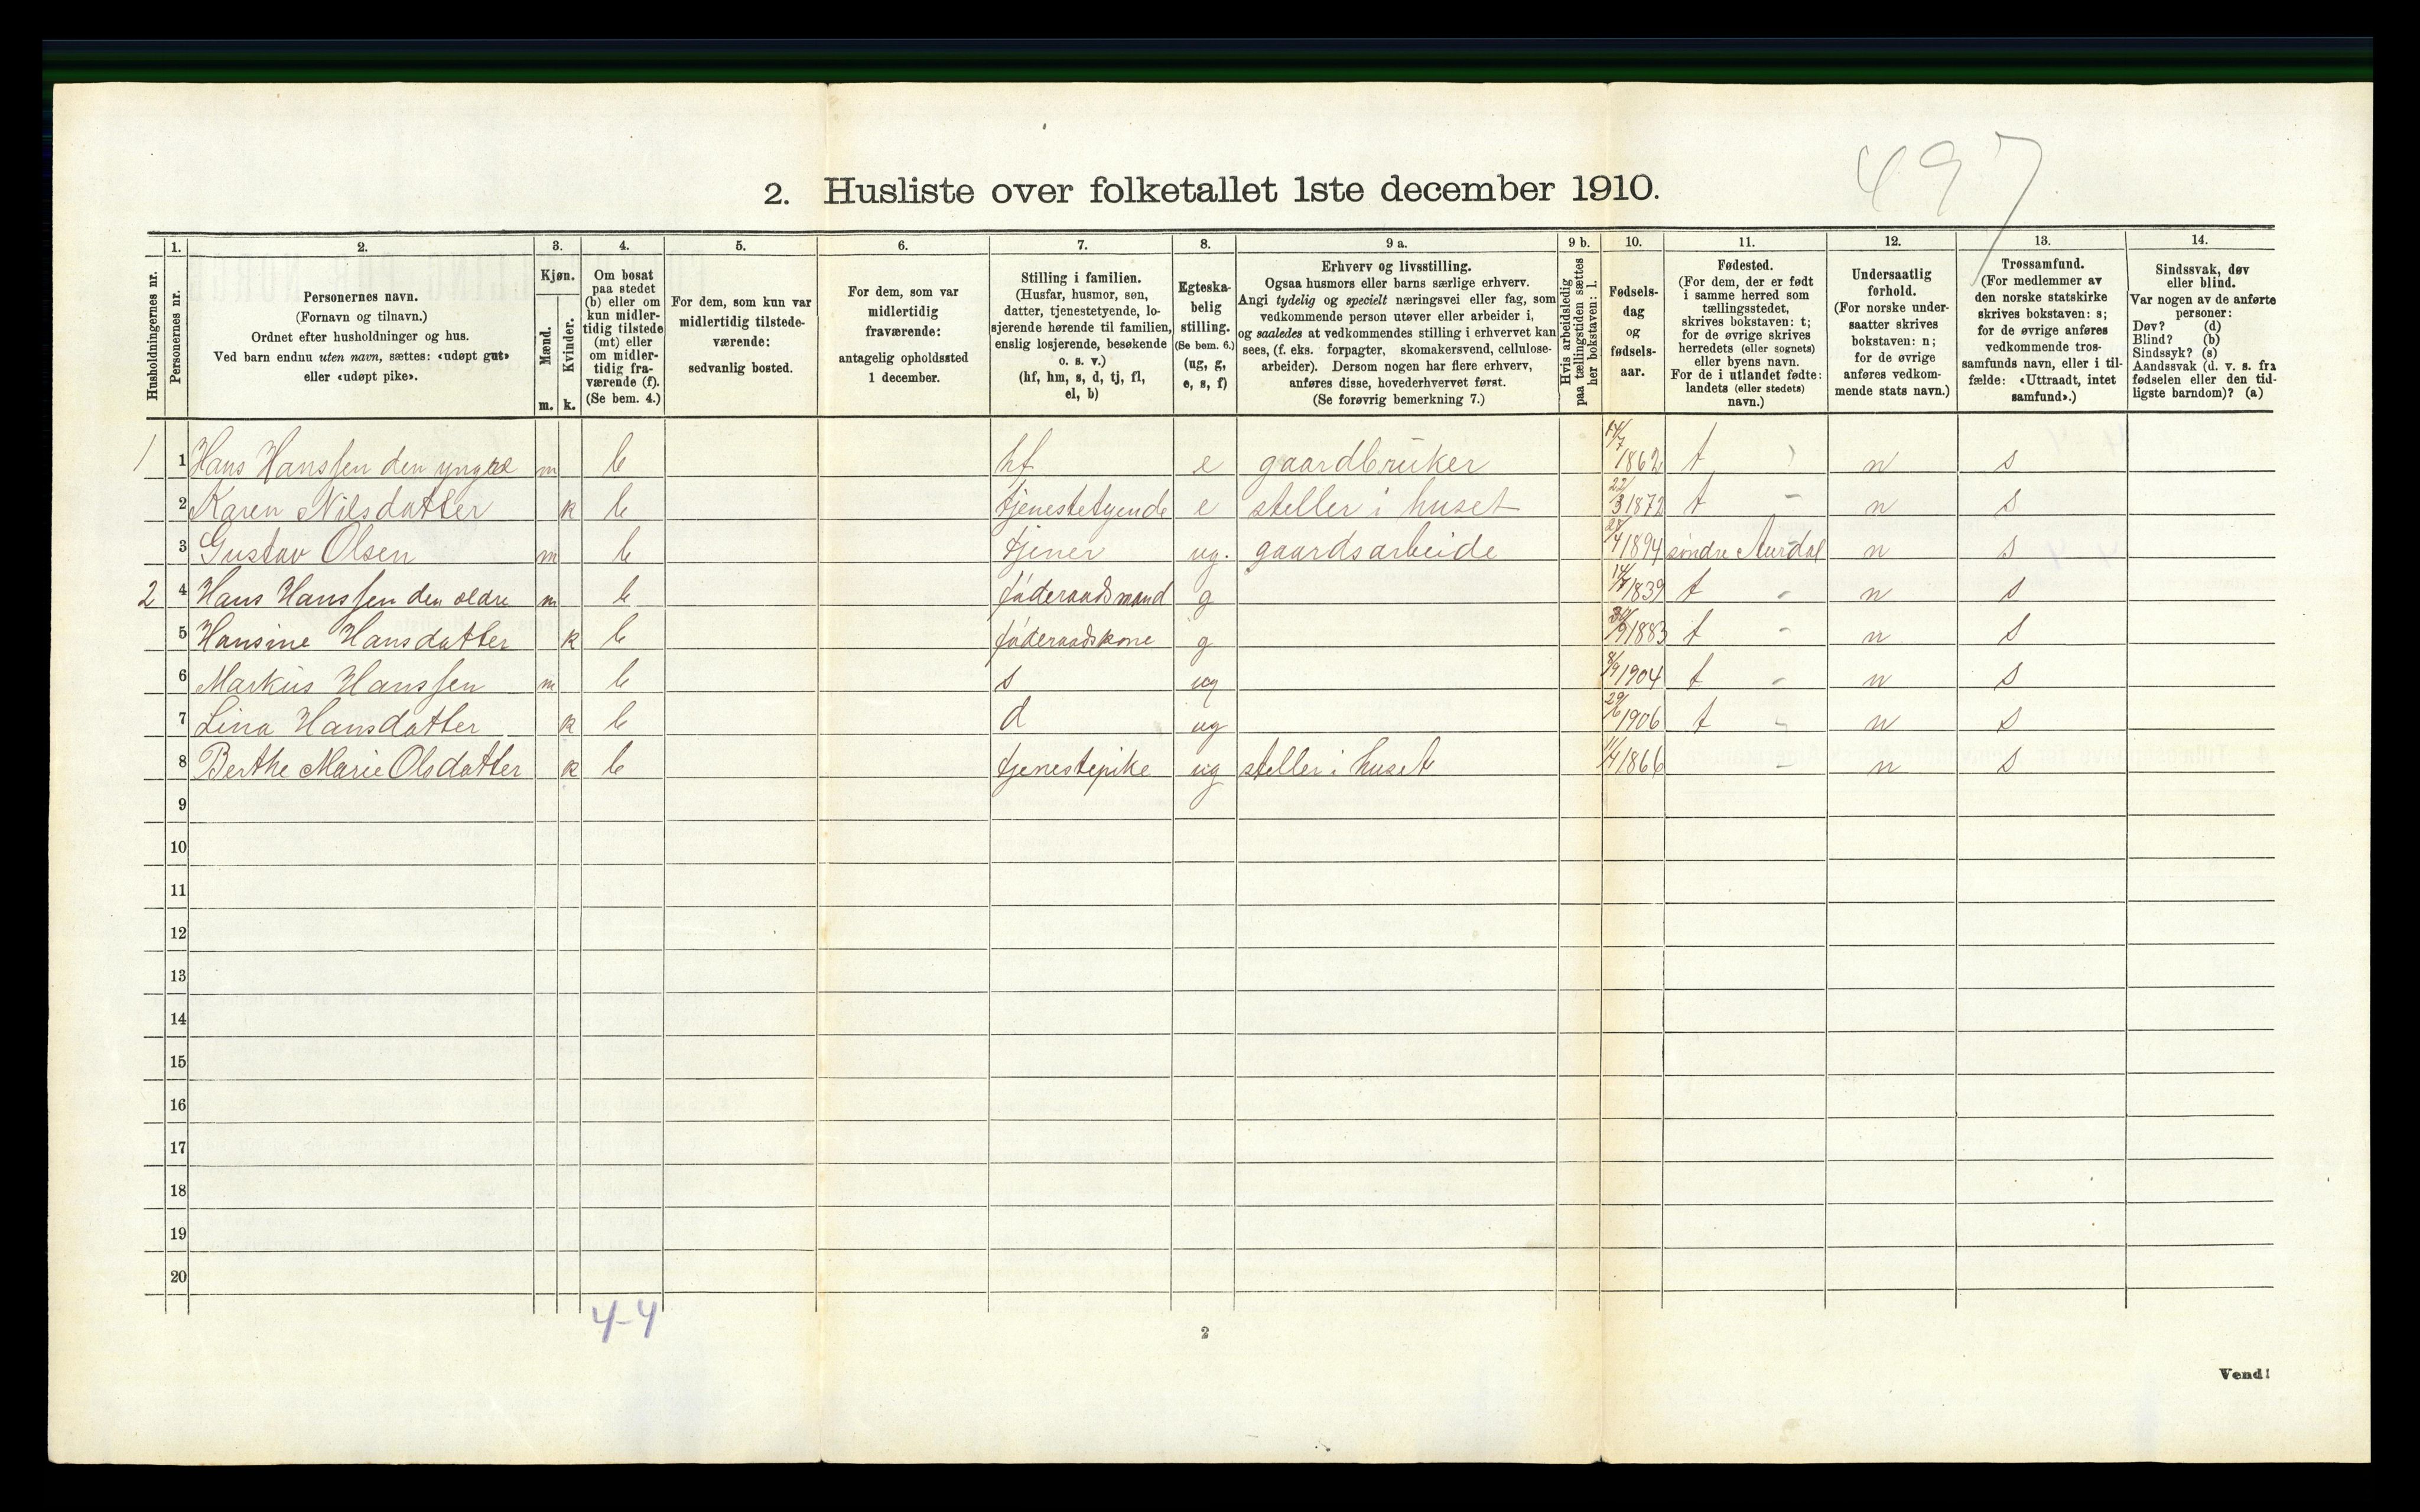 497
2. Husliste over folketallet 1ste december 1910.
Husholdningernes nr.
1.
Personernes nr.
2.
Personernes navn.
(Fornavn og tilnavn.)
Ordnet efter husholdninger og hus.
Ved barn endnu uten navn, sættes: «udøpt gut»
eller «udøpt pike».
3.
Kjøn.
Mænd.
m.
Kvinder.
k.
4.
Om bosat
paa stedet
(b) eller om
kun midler-
tidig tilstede
(mt) eller
om midler-
tidig fra-
værende (f).
(Se bem. 4.)
5.
For dem, som kun var
midlertidig tilstede-
værende:
sedvanlig bosted.
6.
For dem, som var
midlertidig
fraværende:
antagelig opholdssted
1 december.
7.
Stilling i familien.
(Husfar, husmor, søn,
datter, tjenestetyende, lo-
sjerende hørende til familien,
enslig losjerende, besøkende
o. s. v.)
(hf, hm, s, d, tj, fl,
el, b)
8.
Egteska-
belig
stilling.
(Se bem. 6.)
(ug, g,
e, s, f)
9 a.
Erhverv og livsstilling.
Ogsaa husmors eller barns særlige erhverv.
Angi tydelig og specielt næringsvei eller fag, som
vedkommende person utøver eller arbeider i,
og saaledes at vedkommendes stilling i erhvervet kan
sees, (f. eks. forpagter, skomakersvend, cellulose-
arbeider). Dersom nogen har flere erhverv,
anføres disse, hovederhvervet først.
(Se forøvrig bemerkning 7.)
9 b.
Hvis arbeidsledig
paa tællingstiden sættes
her bokstaven: l.
10.
Fødsels-
dag
og
fødsels-
aar.
11.
Fødested.
(For dem, der er født
i samme herred som
tællingsstedet,
skrives bokstaven: t;
for de øvrige skrives
herredets (eller sognets)
eller byens navn.
For de i utlandet fødte:
landets (eller stedets)
navn.)
12.
Undersaatlig
forhold.
(For norske under-
saatter skrives
bokstaven: n;
for de øvrige
anføres vedkom-
mende stats navn.)
13.
Trossamfund.
(For medlemmer av
den norske statskirke
skrives bokstaven: s;
for de øvrige anføres
vedkommende tros-
samfunds navn, eller i til-
fælde: «Uttraadt, intet
samfund».)
14.
Sindssvak, døv
eller blind.
Var nogen av de anførte
personer:
Døv? (d)
Blind? (b)
Sindssyk? (s)
Aandssvak (d. v. s. fra
fødselen eller den tid-
ligste barndom)? (a)
1 1 Hans Hanssen den yngre m b hf e gaardbruker 14/7 1862 t n s
2 Karen Nilsdatter k b tjenestetyende e steller i huset 22/3 1872 t - n s
3 Gustav Olsen m b tjener ug. gaardsarbeide 1894 søndre Aurdal n s
2 4 Hans Hanssen den ældre m b føderaadsmand g 1839 t - n s
5 Hansine Hansdatter k b føderaadskone g 30/9 1883 t - n s
6 Markus Hanssen m b s ug 8/9 1904 t - n s
7 Lina Hansdatter k b d ug 29/6 1906 t - n s
8 Berthe Marie Olsdatter k b tjenestepike ug steller i huset 11/4 1866 - n s
9
10
11
12
13
14
15
16
17
18
19
20
4-4
2
Vend!